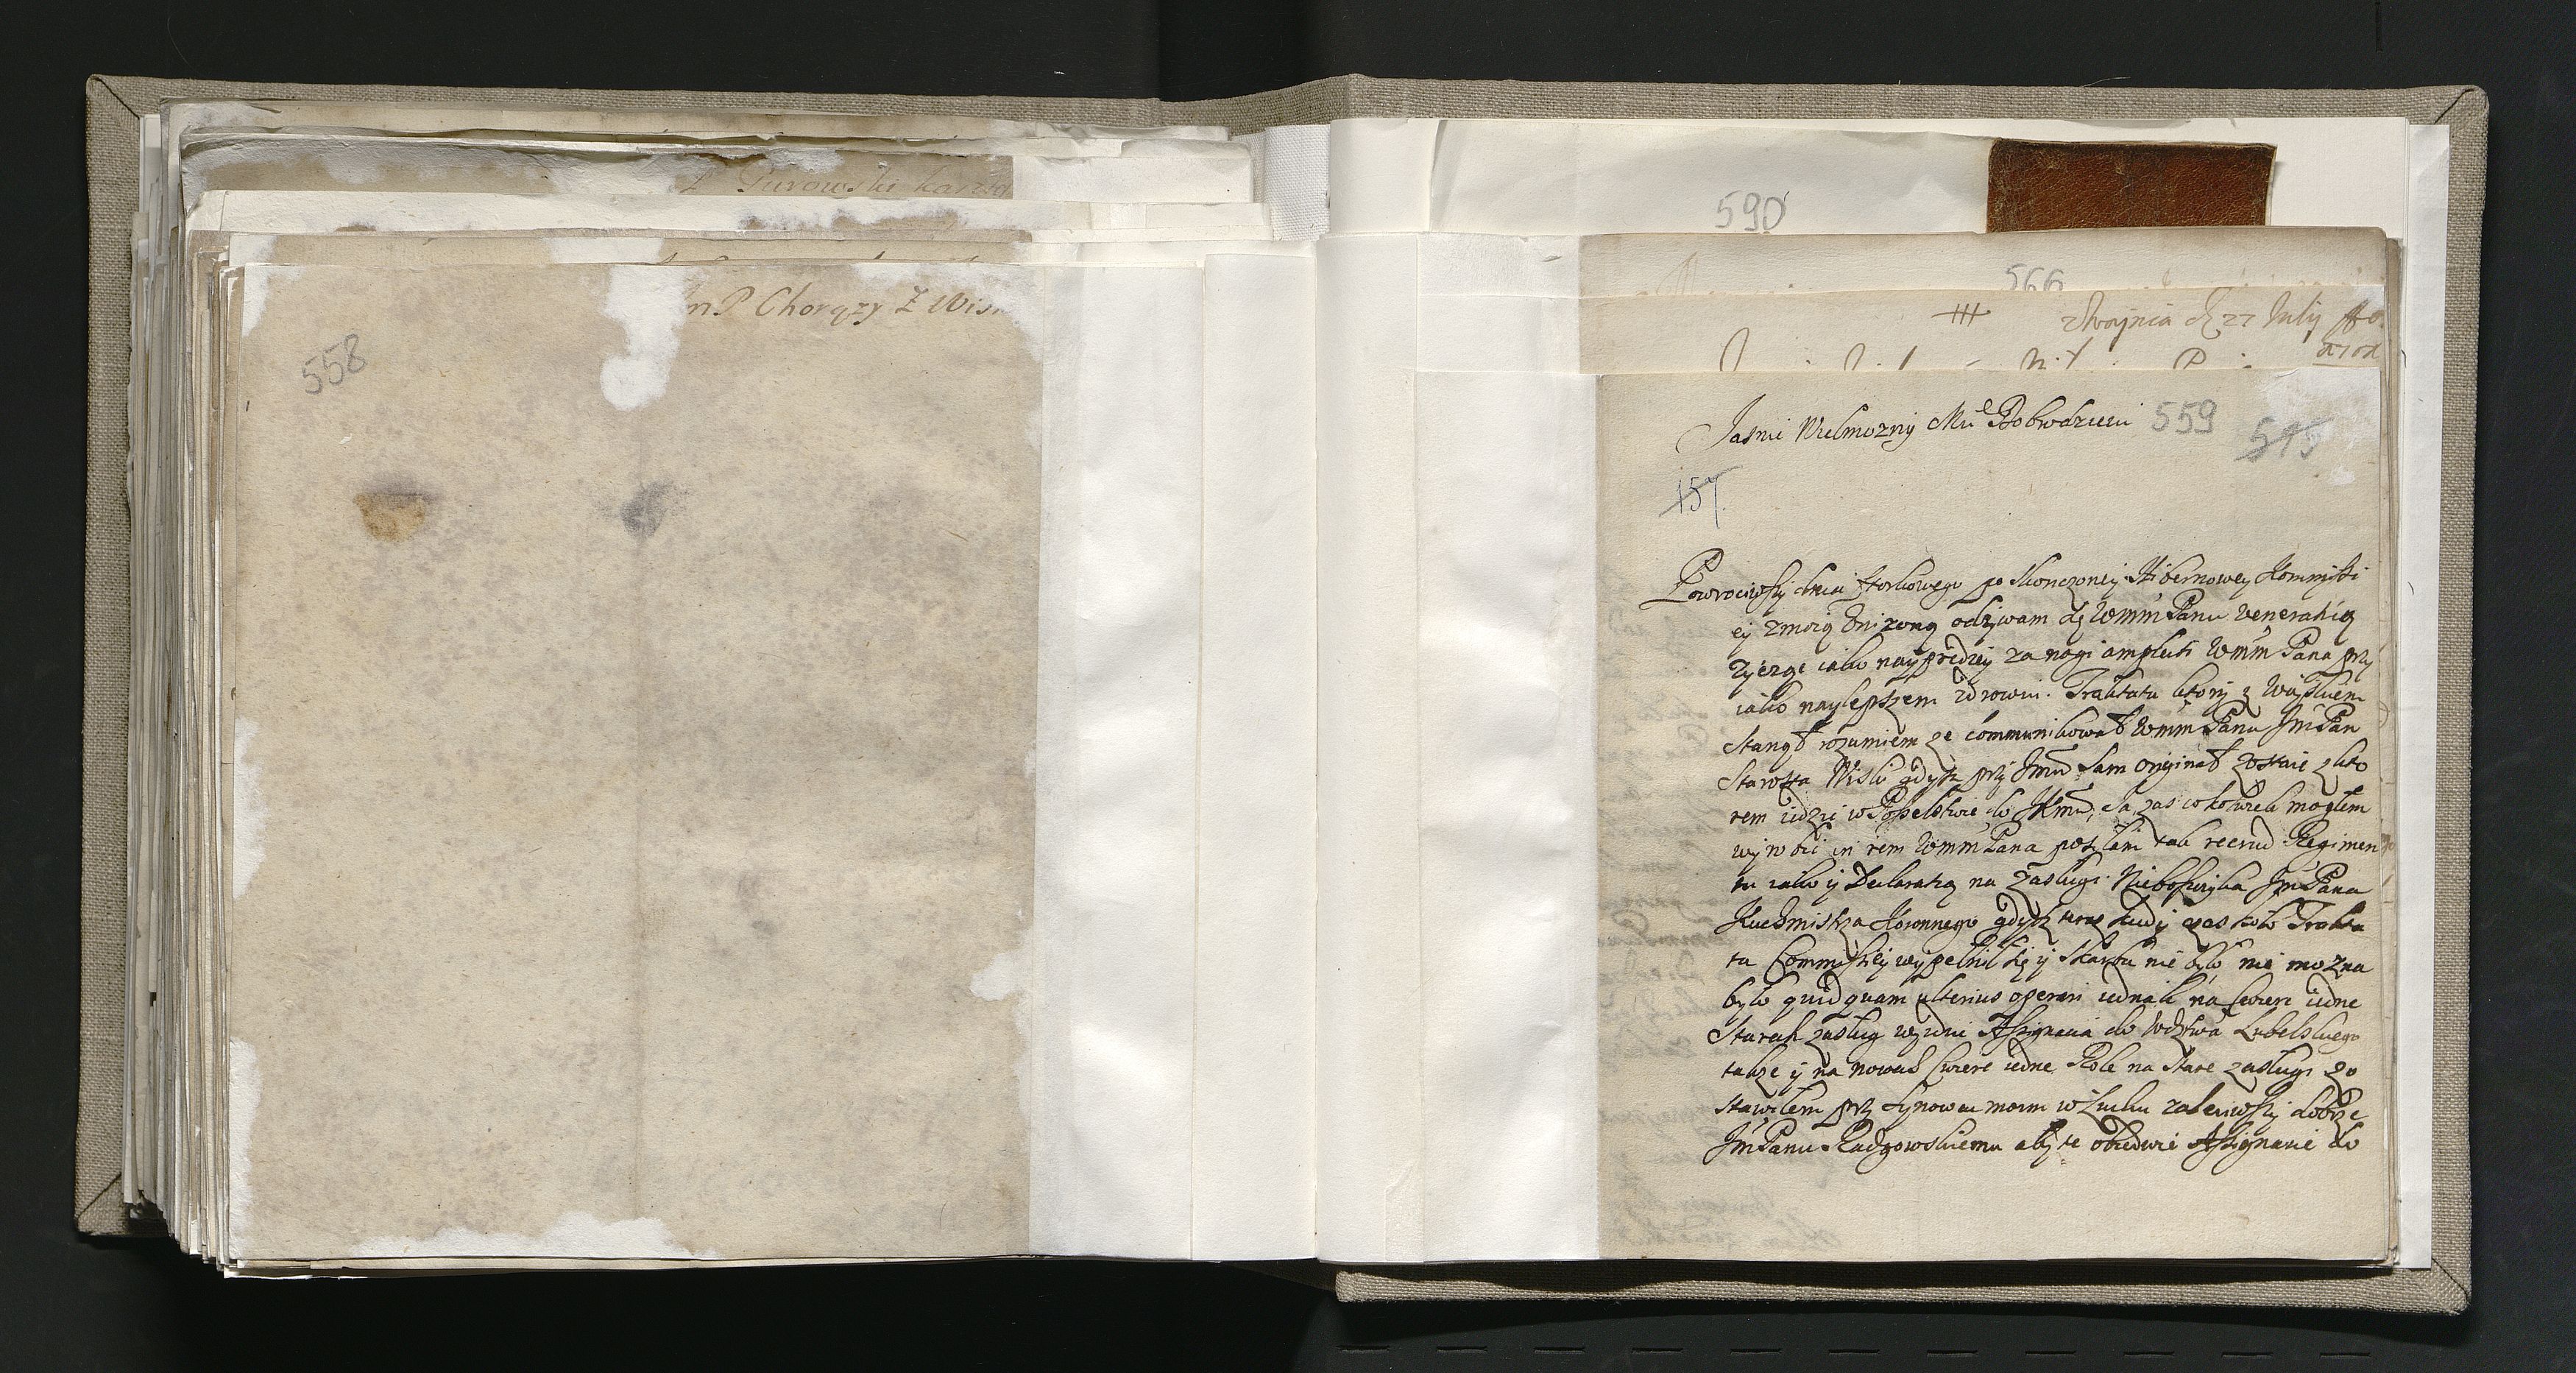 Gurowski
558
P Chorązy Z Wis
590
566
22 July
Jasnie Wielmozny Mci Dobrodzieiu 559
157
Powrociwszy dnia wtorkowego po skonczoney Hibernowey Kommissi
ey z moią Unizoną odzywam się WMM Panu veneratią
zyczge iako nayprędzey za nogi amplecti WMM Pana przy
iako naylepszem zdrowiu. Traktatu ktory z Woyskiem
stanął rozumiem ze communikował WMM Panu JmPan
Starosta gdysz przy Jmci sam originał zostaie z kto
rem idzie w Poselstwie do JKmci, Ja zas cokolwiek mogłem
wyrobic in rem WMM Pana posyłam tak recrud Regimen
tu iako y Declaratią na zasługi Nieboszczyka JmPana
Kuchmistrza Koronnego gdysz teraz kiedy czas koło Trakta
tu Commissiey wypełnił się y Skarbu nie było nie mozna
było quidquam ulterius operari iednak na cwierc iedne
Starych zasług wydni Assignacia do Wdztwa Lubelskiego
takze y na nowych cwierc iedne Role na Stare zasługi zo
stawiłem przy Synowcu moim w Lucku zaleciwszy dobrze
JmPanu Radzowskiemu aby te obiedwie Assignacie do